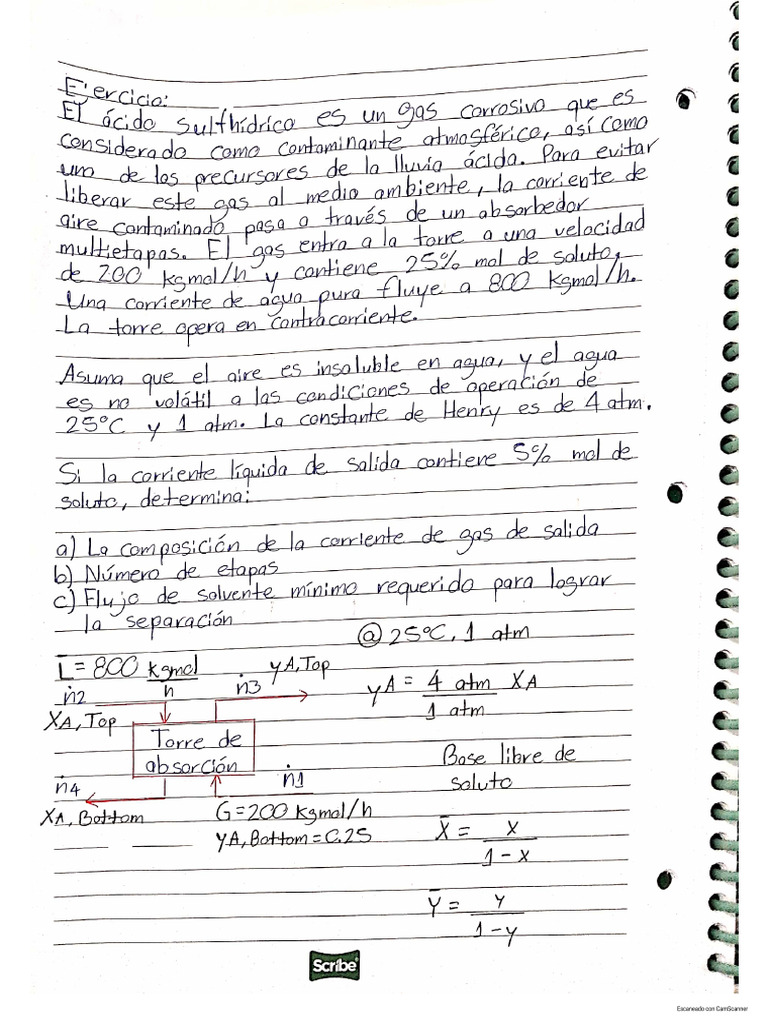 Ejercicio:
El ácido sulfhídrico es un gas corrosivo que es
considerado como contaminante atmosférico, así como
uno de los precursores de la lluvia ácida. Para evitar
liberar este gas al medio ambiente, la corriente de
aire contaminado pasa a través de un absorbedor
multietapas. El gas entra a la torre a una velocidad
de 200 kgmol/h y contiene 25% mol de soluto.
Una corriente de agua pura fluye a 800 kgmol/h.
La torre opera en contracorriente.
Asuma que el aire es insoluble en agua, y el agua
es no volátil a las condiciones de operación de
25°C y 1 atm. La constante de Henry es de 4 atm.
Si la corriente líquida de salida contiene 5% mol de
soluto, determina:
a) La composición de la corriente de gas de salida
b) Número de etapas
c) Flujo de solvente mínimo requerido para lograr
la separación
@ 25°C, 1 atm
L̅ = 800 kgmol/h
ṅ2
XA, Top
yA, Top
ṅ3
yA = 4 atm / 1 atm XA
Torre de
absorción
ṅ4
XA, Bottom
ṅ1
G = 200 kgmol/h
yA, Bottom = 0.25
Base libre de
soluto
X̅ = x / 1 - x
Y̅ = y / 1 - y
Scribe
Escaneado con CamScanner